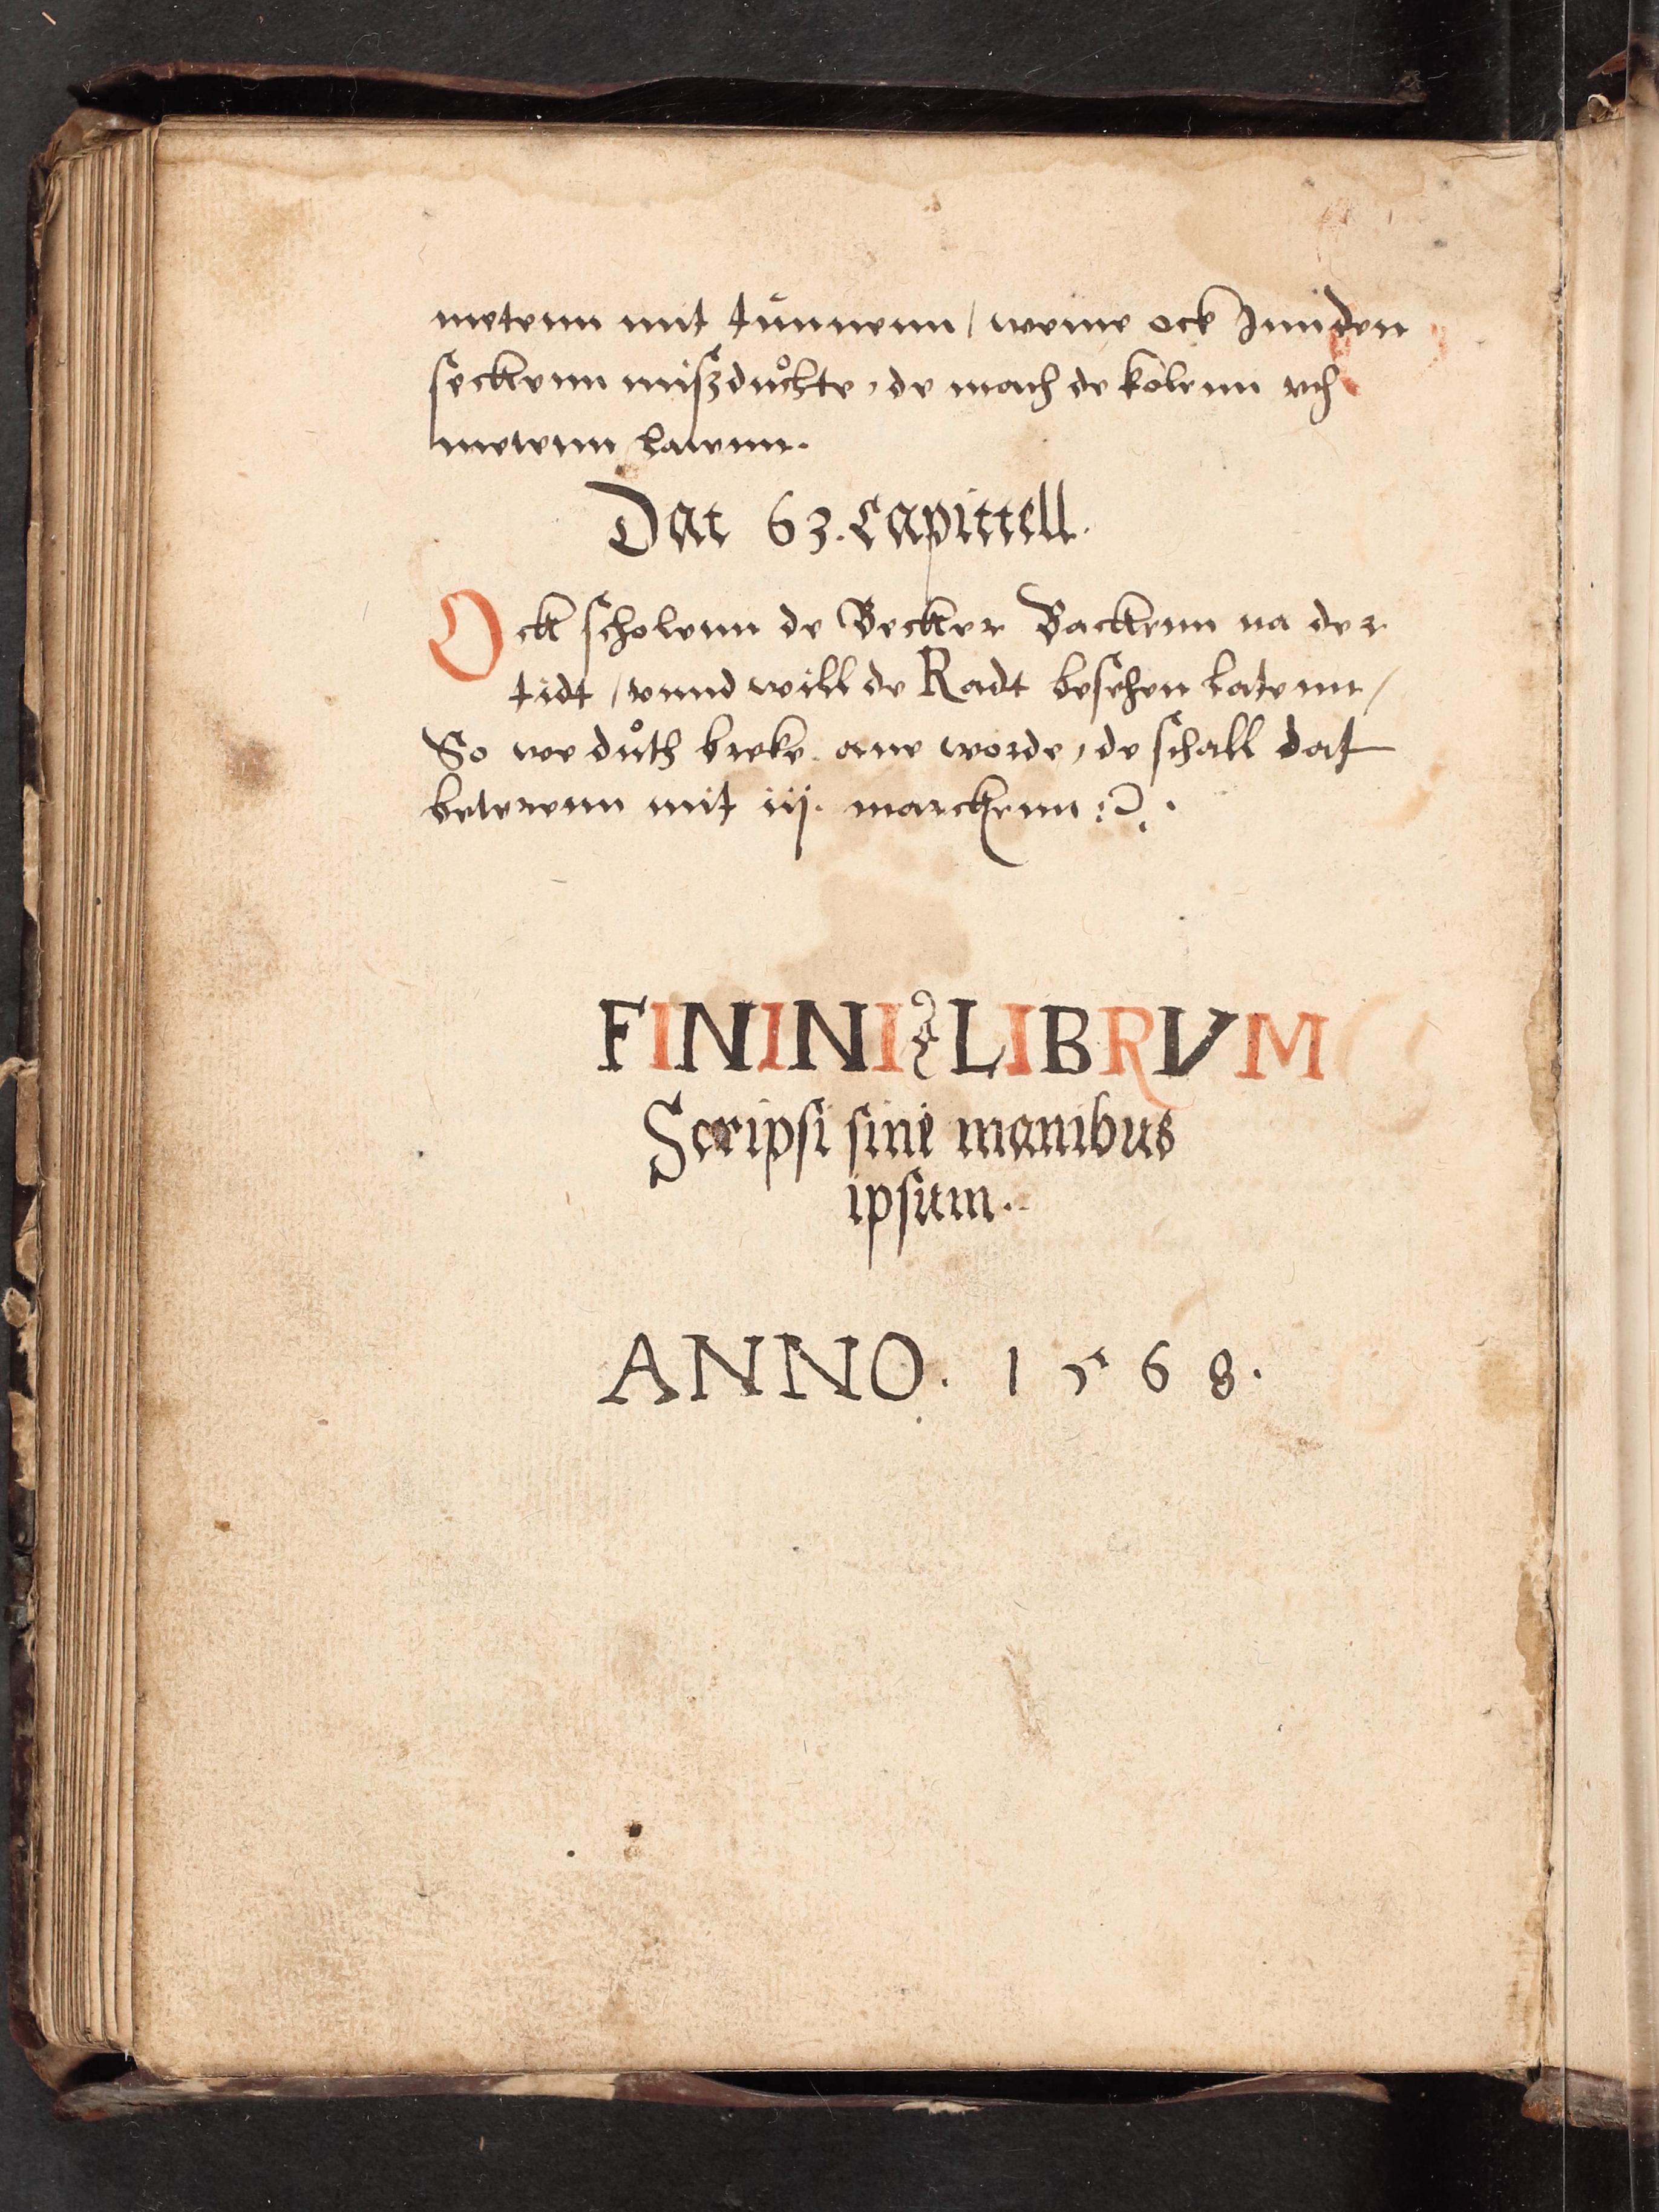 metenn mit tůnnenn / weme ock Inn den
seckenn miszdůchte, de mach de kolenn
metenn latenn.
Dat 63. Capittell.
Ock scholenn de Becker Backenn na der
tidt / vnnd will de Radt besehen latenn /
So we důth breke ane worde, de schall dat
beterenn mit iij. marckenn
FININI LIBRVM
Scripsi sine manibus
ipsum.
ANNO. 1568.